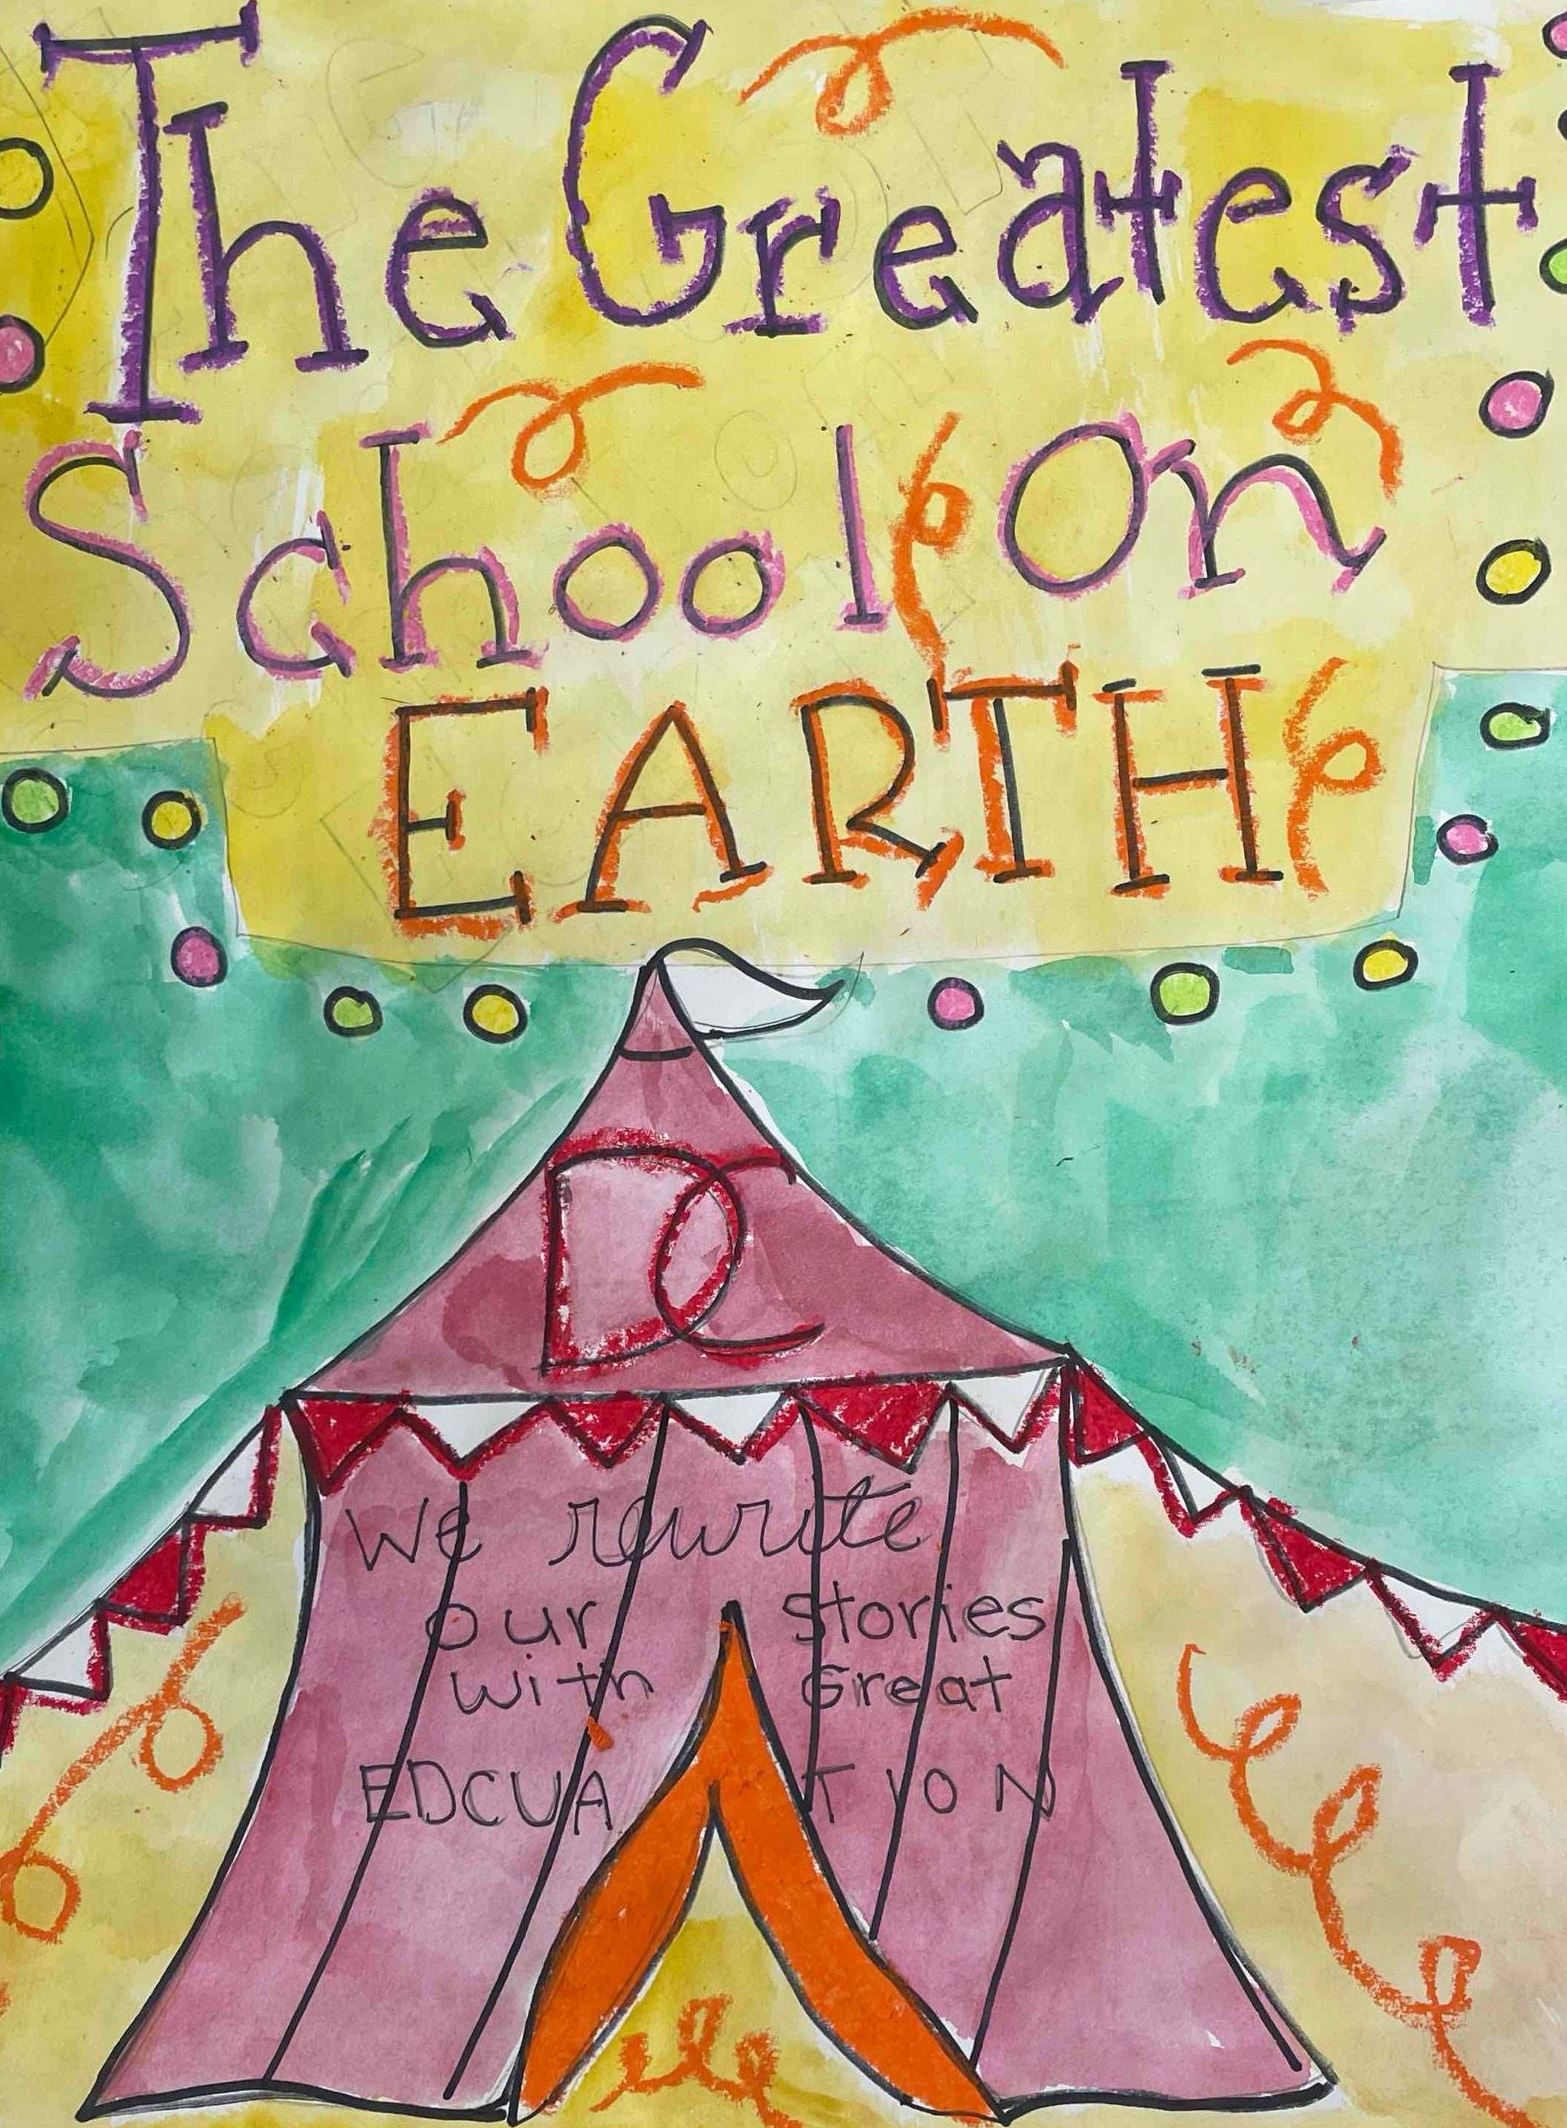 The Greatest
School On
EARTH
DC
We rewrite
our stories
with Great
EDCUATION